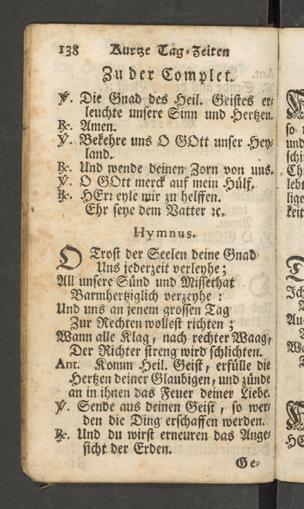 138 Kurtze Tag-Zeiten
Zu der Complet.
℣. Die Gnad des Heil. Geistes er-
leuchte unsere Sinn und Hertzen.
℟. Amen.
℣. Bekehre uns O GOtt unser Hey-
land.
℟. Und wende deinen Zorn von uns.
℣. O GOtt merck auf mein Hülf.
℟. HErr eyle mir zu helffen.
Ehr seye dem Vatter ꝛc.
Hymnus.
O Trost der Seelen deine Gnad
Uns jederzeit verleyhe;
All unsere Sünd und Missethat
Barmhertziglich verzeyhe:
Und uns an jenem grossen Tag
Zur Rechten wollest richten;
Wann alle Klag, nach rechter Waag,
Der Richter streng wird schlichten.
Ant. Komm Heil. Geist, erfülle die
Hertzen deiner Glaubigen, und zünde
an in ihnen das Feuer deiner Liebe.
℣. Sende aus deinen Geist, so wer-
den die Ding erschaffen werden.
℟. Und du wirst erneuren das Ange-
sicht der Erden.
Ge-